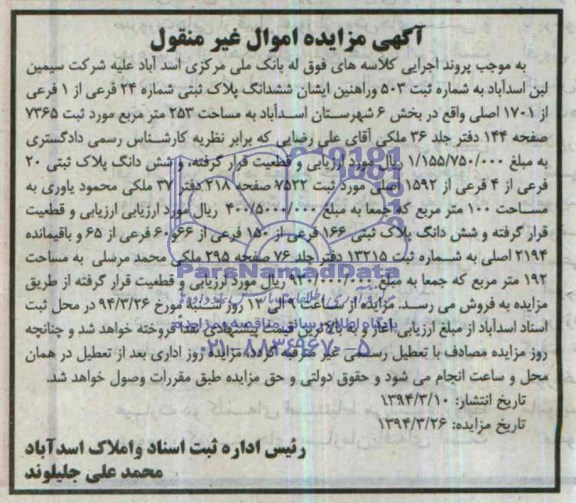 آگهی مزایده اموال غیر منقول
به موجب پروند اجرایی کلاسه های فوق له بانک ملی مرکزی اسد آباد علیه شرکت سیمین
لبن اسدآباد به شماره ثبت ۵۰۳ وراهنین ایشان ششدانگ پلاک ثبتی شماره ۲۴ فرعی از ۱ فرعی
از ۱۷۰۱ اصلی واقع در بخش ۶ شهرستان اسدآباد به مساحت ۲۵۳ متر مربع مورد ثبت ۷۳۶۵
صفحه ۱۴۴ دفتر جلد ۳۶ ملکی آقای علی رضایی که برابر نظریه کارشناس رسمی دادگستری
به مبلغ ۱/۱۵۵/۷۵۰/۰۰۰ ریال مورد ارزیابی و قطعیت قرار گرفته، و شش دانگ پلاک ثبتی ۲۰
فرعی از ۴ فرعی از ۱۵۹۲ اصلی مورد ثبت ۷۵۲۲ صفحه ۲۱۸ دفتر ۳۷ ملکی محمود یاوری به
مساحت ۱۰۰ متر مربع که جمعا به مبلغ ۴۰۰/۵۰۰۰/۰۰۰ ریال مورد ارزیابی ارزیابی و قطعیت
قرار گرفته و شش دانگ پلاک ثبتی ۱۶۶ فرعی از ۱۵۰ فرعی از ۶۶و۶۰ فرعی از ۶۵ و باقیمانده
۲۱۹۴ اصلی به شماره ثبت ۱۳۲۱۵ دفتر جلد ۷۶ صفحه ۲۹۵ ملکی محمد مرسلی به مساحت
۱۹۲ متر مربع که جمعا به مبلغ ۹۲۰/۰۰۰/۰۰۰ ریال مورد ارزیابی و قطعیت قرار گرفته از طریق
مزایده به فروش می رسد. مزایده از ساعت ۹ الی ۱۲ روز شنبه مورخ ۹۴/۳/۲۶ در محل ثبت
اسناد اسدآباد از مبلغ ارزیابی آغاز و به بالاترین قیمت پیشنهادی نقدا فروخته خواهد شد و چنانچه
روز مزایده مصادف با تعطیل رسمی غیر مترقبه گردد، مزایده روز اداری بعد از تعطیل در همان
محل و ساعت انجام می شود و حقوق دولتی و حق مزایده طبق مقررات وصول خواهد شد.
تاریخ انتشار: ۱۳۹۴/۳/۱۰
تاریخ مزایده: ۱۳۹۴/۳/۲۶
رئیس اداره ثبت اسناد واملاک اسدآباد
محمد علی جلیلوند
ParsNamadData
پایگاه اطلاع رسانی مناقصه و مزایده
۰۲۱-۸۸۳۴۹۶۷۰-۵